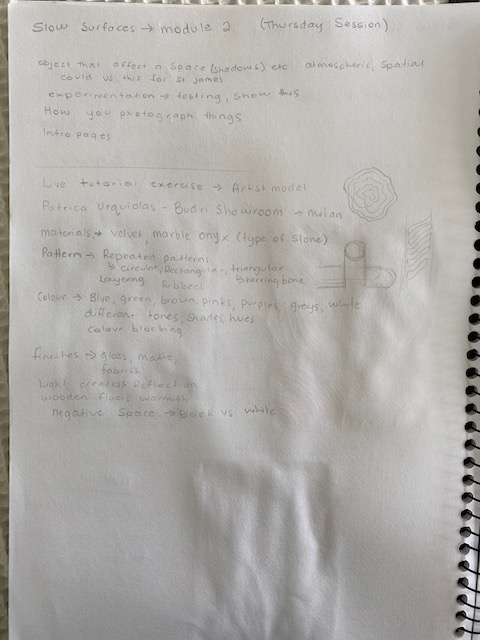 Slow Surfaces → module 2 (Thursday Session)
object that affect a space (shadows) etc atmospheric, Spatial
could us this for St James
experimentation → testing, show this
How you photograph things
Intro pages
Live tutorial exercise → Artist model
Patrica Urquiolas - Budri Showroom → milan
materials → velvet, marble onyx (type of stone)
Pattern → Repeated patterns
↳ circular, Rectangular, triangular
Layering Ribbed ↳ herring bone
Colour → Blue, green, brown, pinks, purples, greys, white
different tones, shades, hues
colour blocking
finishes → gloss, matte,
fabrics
Light creates Reflection
wooden floors warmth
negative space → Black vs white